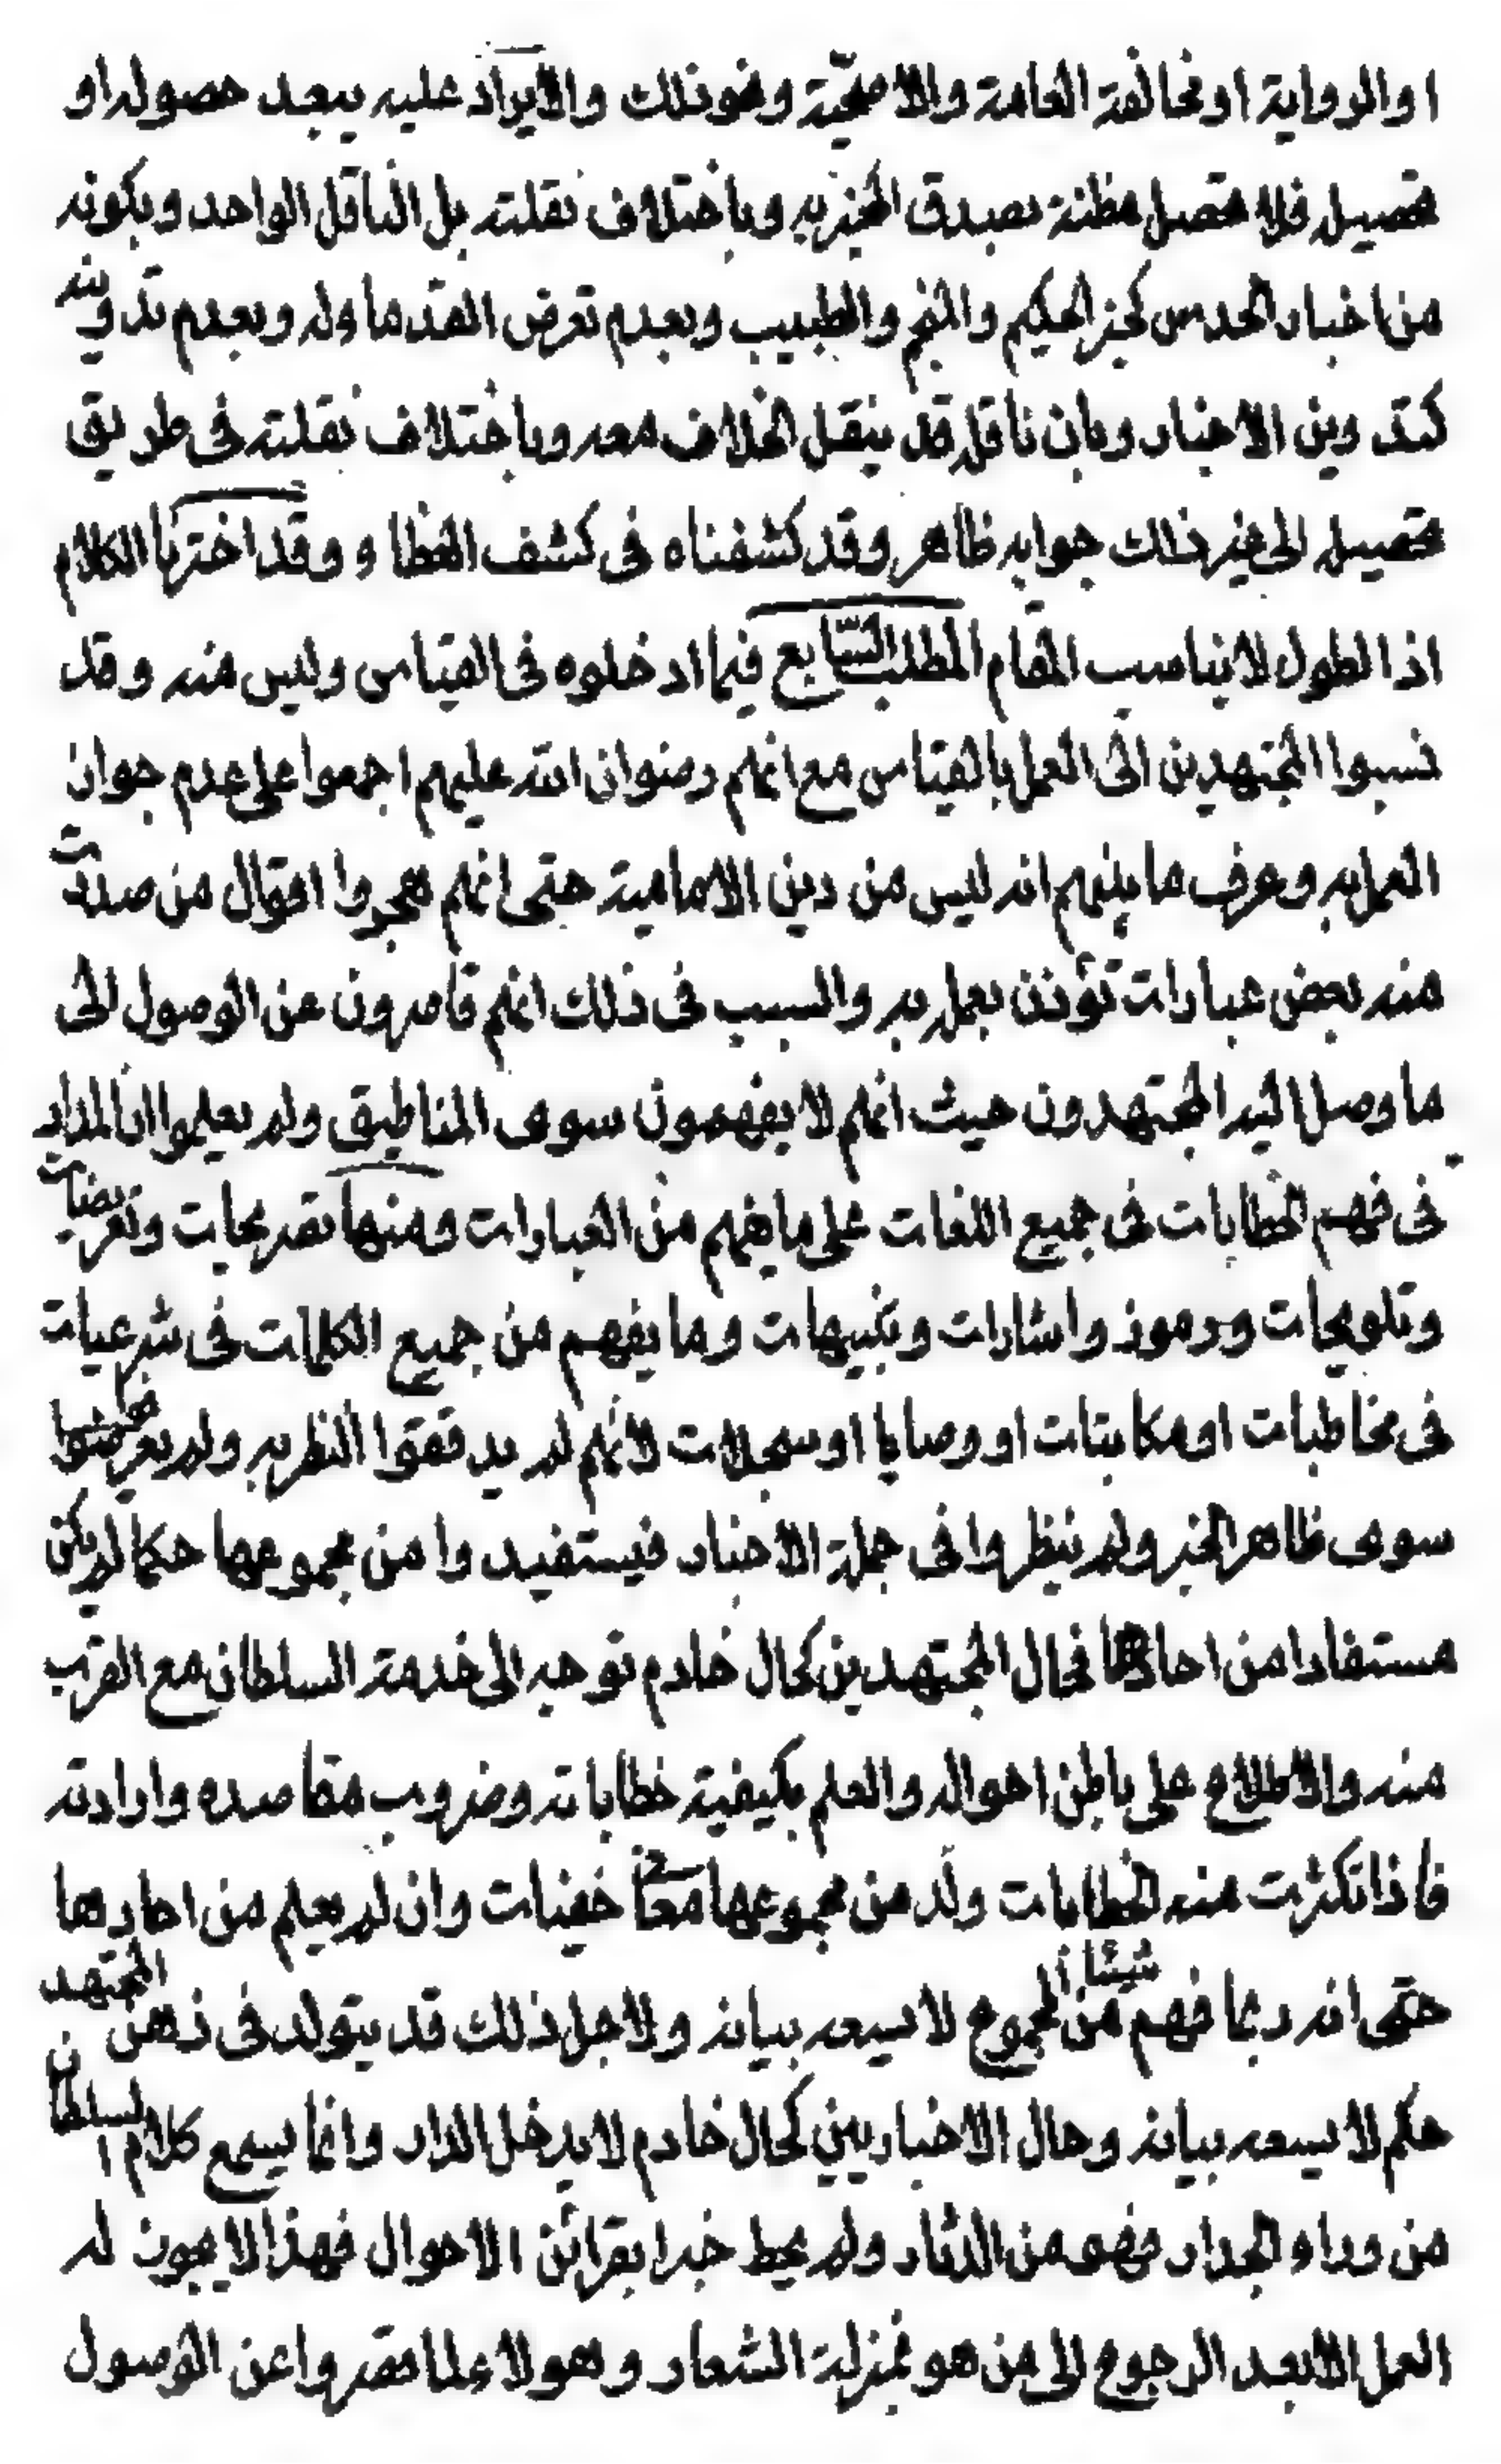 او الرواية او مخالفة العامة والاصحّية ونحو ذلك والايراد عليه ببعد حصوله او
تحصيله فلا تحصل مظنة بصدق المخبر به وباختلاف نقلته بل الناقل الواحد وبكونه
من اخبار الحدس كخبر الحكيم والمنجم والطبيب وبعدم تعرض القدماء له وبعدم تدوينه
كتدوين الاخبار وبان ناقله قد ينقل الخلاف معه وباختلاف نقلته في طريق
تحصيله الى غير ذلك جوابه ظاهر وقد كشفناه في كشف الغطاء وقد اخترنا الكلام
اذ الطول لا يناسب المقام المطلب السّابع فيما ادخلوه في القياس وليس منه وقد
نسبوا المجتهدين الى العمل بالقياس مع انهم رضوان الله عليهم اجمعوا على عدم جواز
العمل به وعرف ما بينهم انه ليس من دين الامامية حتى انهم هجروا اقوال من صدرت
منه بعض عبارات تؤذن بعمله به والسبب في ذلك انهم قاصرون عن الوصول الى
ما وصل اليه المجتهدون حيث انهم لا يفهمون سوى المناطيق ولم يعلموا ان المدار
في فهم الخطابات في جميع اللغات على ما يفهم من العبارات ومنها تصريحات وتعريضات
وتلويحات ورموز واشارات وتنبيهات وما يفهم من جميع الكلمات في شرعيات
في مخاطبات او مكاتبات او وصايا او سجلات لانهم لم يدققوا النظر به ولم يعرضوا
سوى ظاهر الخبر ولم ينظروا في جملة الاخبار فيستفيدوا من مجموعها حكما لم يكن
مستفادا من احادها فحال المجتهدين كحال خادم توجه الى خدمة السلطان مع القرب
منه والاطلاع على باطن احواله والعلم بكيفية خطاباته وضروب مقاصده وارادته
فاذا تكثرت منه الخطابات ولد من مجموعها خفيات وان لم يعلم من احادها
حتى انه ربما فهم شيئا من المجموع لا يسعه بيانه ولاجل ذلك قد يتولد في ذهن المجتهد
حكم لا يسعه بيانه وحال الاخباريين كحال خادم لا يدخل الدار وانما يسمع كلام السلطان
من وراء الجدار فهو من الدثار ولم يحط خبرا بقرائن الاحوال فهذا لا يجوز له
العمل الا بعد الرجوع الى من هو بمنزلة الشعار وهولاء لما قصروا عن الوصول